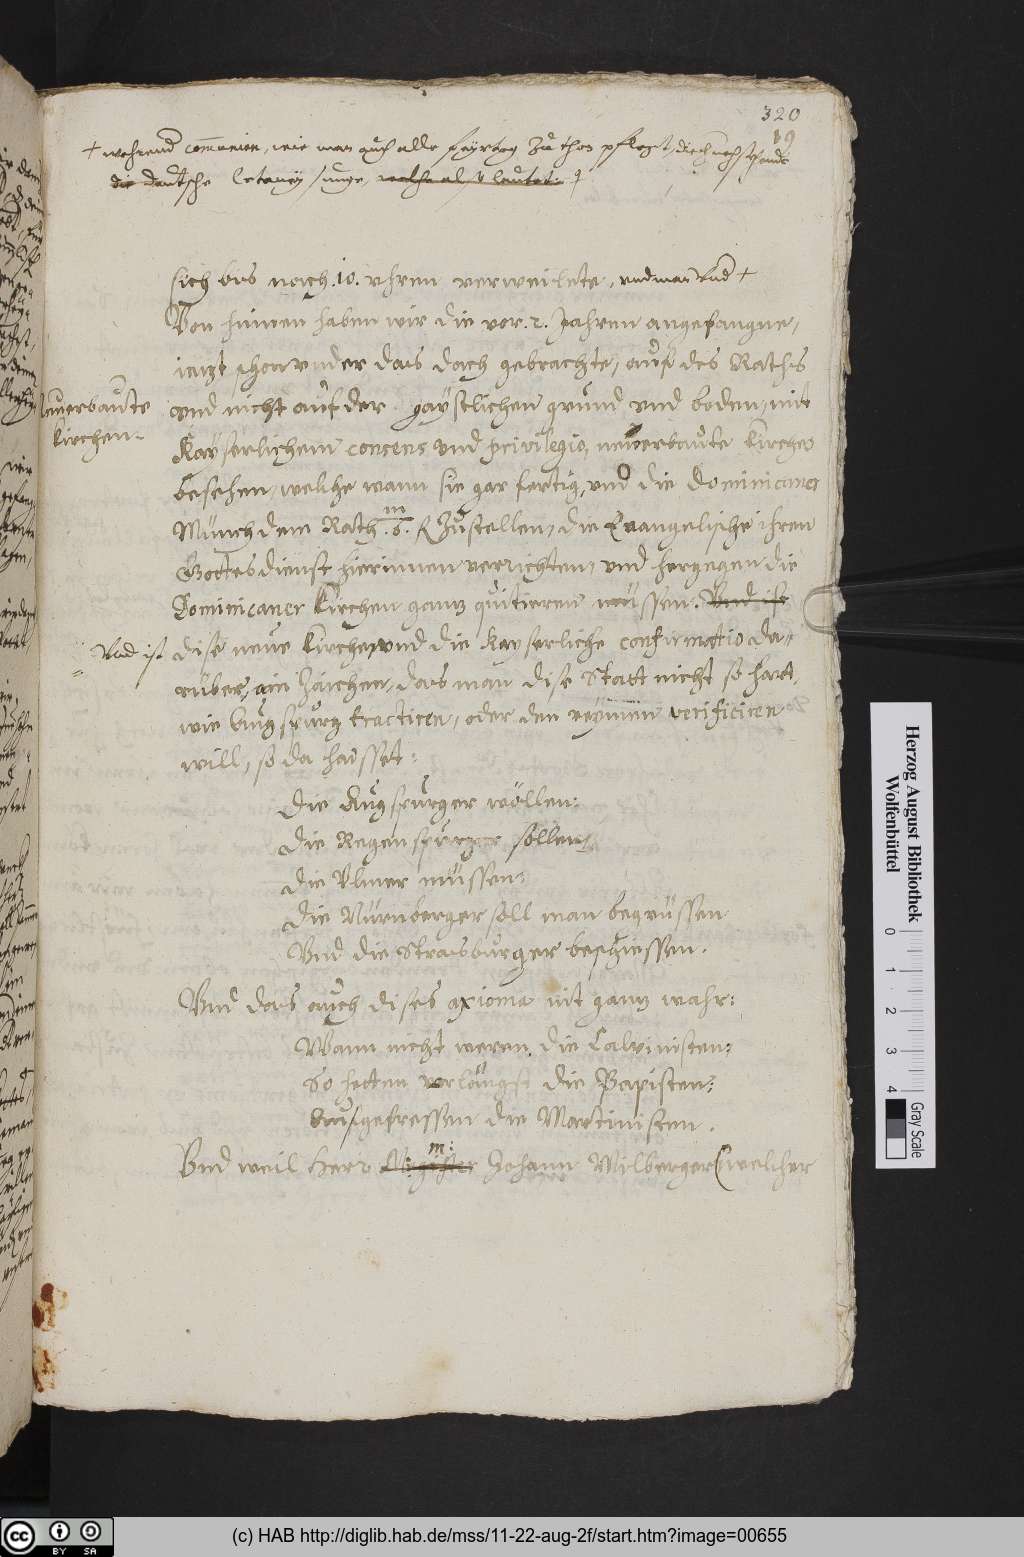 320
+ wehrend communion, wie man auch alle feyrtag zu thon pflegt,
die Deütsche Letaney sunge, welche also lautet:
sich bis nach .10. uhren verweilete, und man
Von hinnen haben wir die vor .2. Jahren angefangne,
iezt schon under das dach gebrachte, auf des Raths
und nicht auf der gaystlichen grund und boden, mit
Neuerbaute
Kirchen.
Kayserlichem concens und privilegio, neuerbaute Kirchen
besehen, welche wann sie gar fertig, und die Dominicaner
Münch dem Rath .6. m fl zustellen, die Evangelische ihren
Gottesdienst hierinnen verrichten, und hergegen die
Dominicaner Kirchen ganz quitieren müssen. Und ist
Und ist dise neue Kirchen und die Kayserliche confirmatio da-
rüber, ain zaichen, das man dise Statt nicht so hart,
wie Augspurg tractiren, oder den reymen verificiren
will, so da haisset:
Die Augspurger wöllen:
Die Regenspurger sollen:
Die Ulmer müssen:
Die Nürnberger soll man begrüssen
Und die Strasburger beschiessen.
Und das auch dises axioma nit ganz wahr:
Wann nicht weren die Calvinisten:
So hetten vorlängst die Papisten:
Aufgefressen die Martinisten.
Und weil Herr Magister m: Johann Milberger (welcher
Herzog August Bibliothek
Wolfenbüttel
0 1 2 3 4
Gray Scale
cc BY SA
(c) HAB http://diglib.hab.de/mss/11-22-aug-2f/start.htm?image=00655